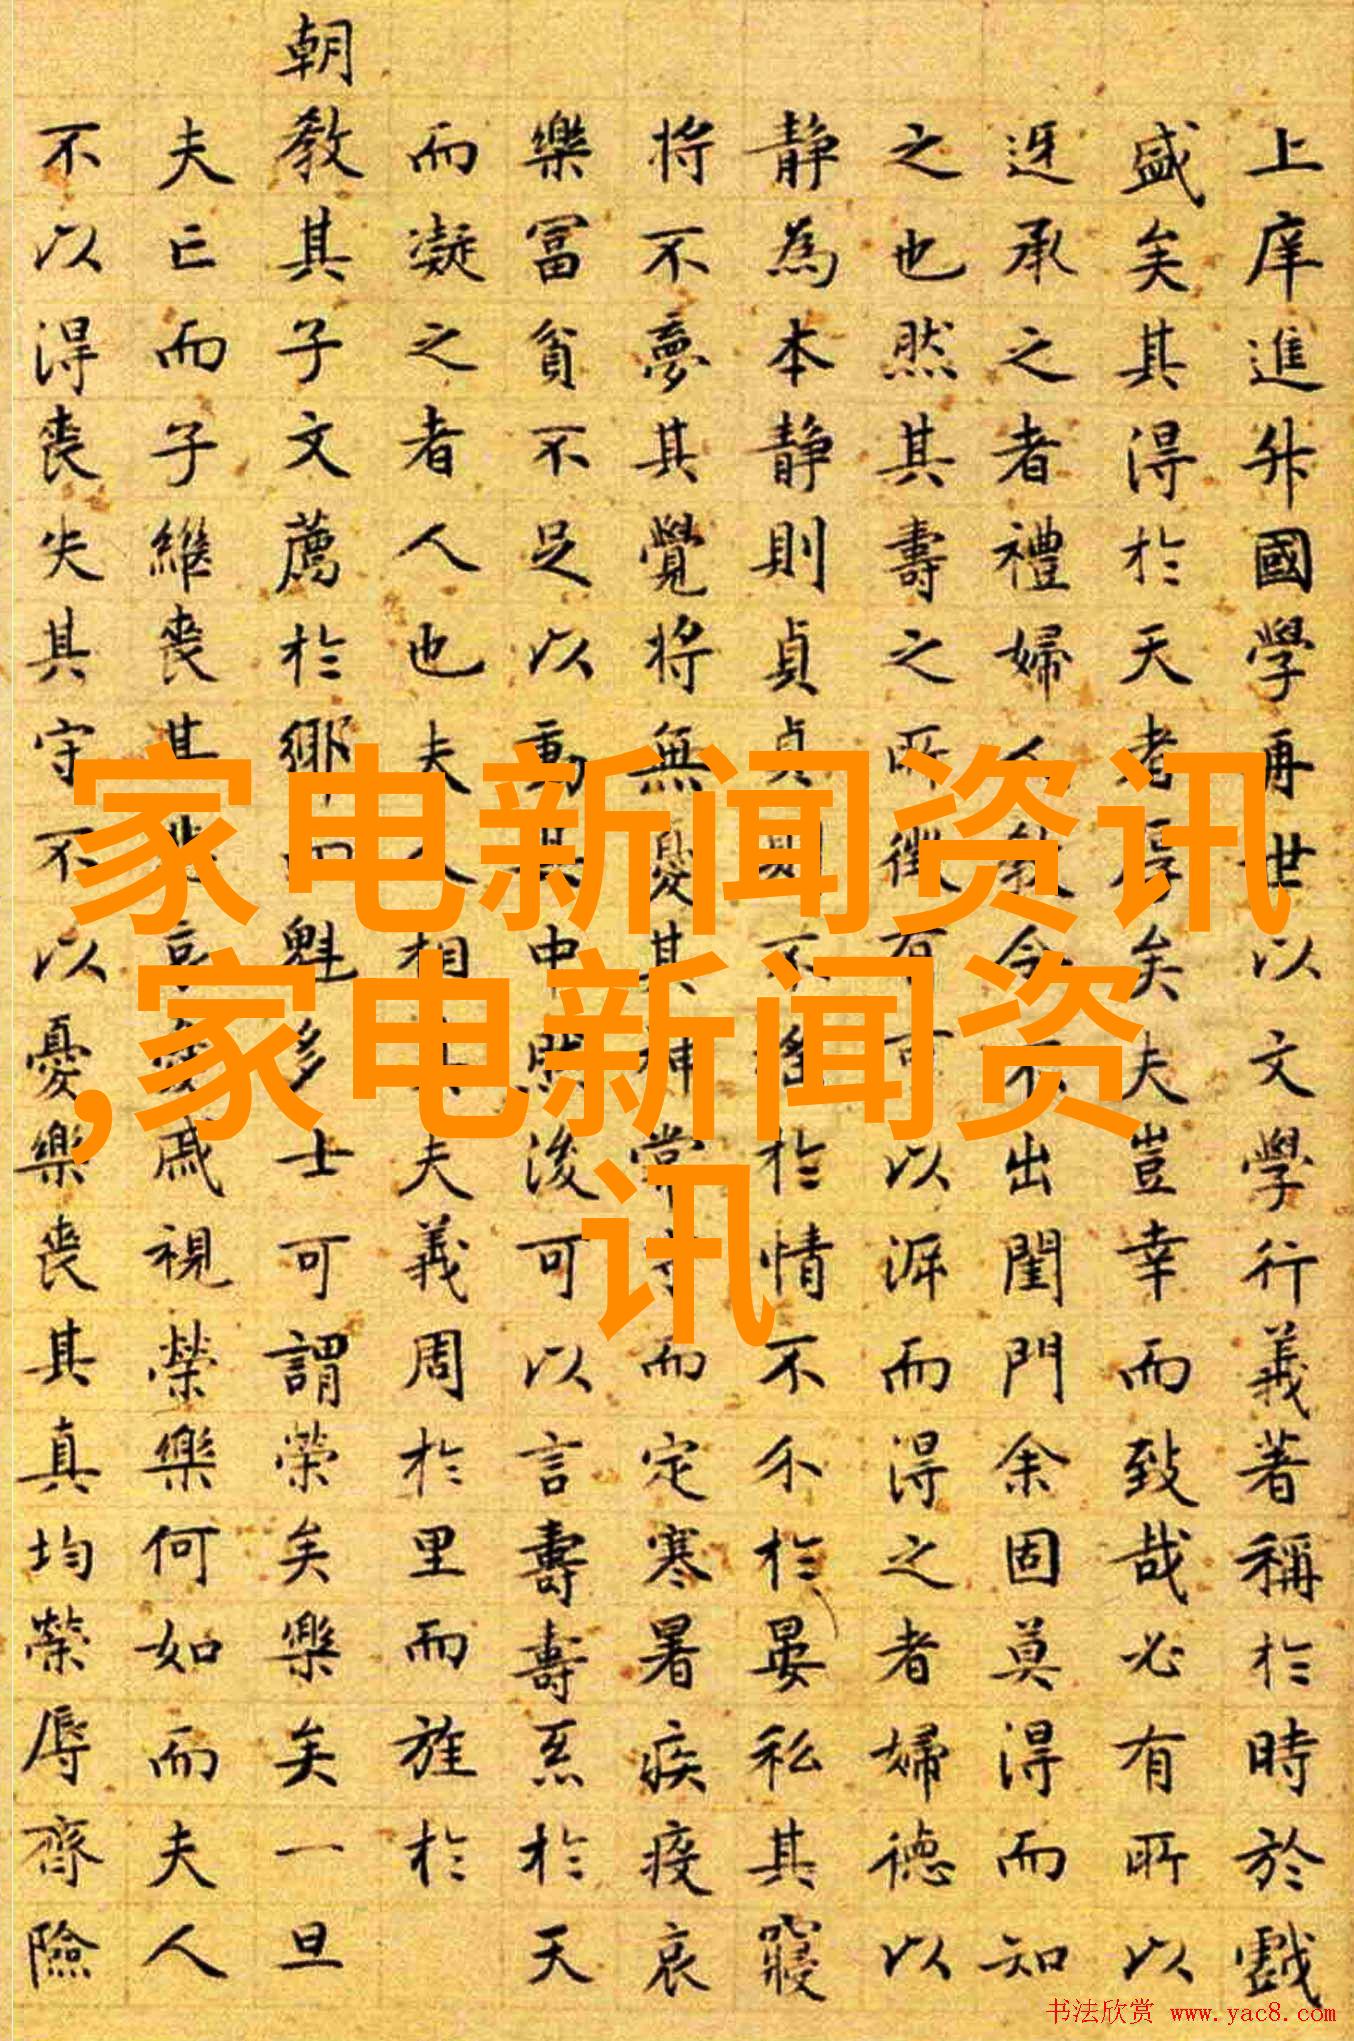 上庠進升國學再世以文學行義著稱於時於戲
盛矣其得於天者厚矣夫豈幸而致哉必有所以
迓承之者禮婦人教令不出閨門余固莫得而知
之也然其壽之所徵有可以涯而得之者婦德以
静為本静則貞貞則不於情不介於晏私其寢
将不夢其覺将無憂其神常而定寒暑疾疫哀
樂富貧不足以動其中然後可以言壽壽系於天
而凝之者人也夫人相其夫義周於里而旌於
朝教其子文薦於鄉四魁多士可謂榮矣樂矣一旦
夫亡而子繼喪其哀戚視榮樂何如而夫人
不以得喪失其守不以憂樂喪其真均榮辱齊險
家电新闻资讯
,家电新闻资
讯
书法欣赏 www.yac8.com